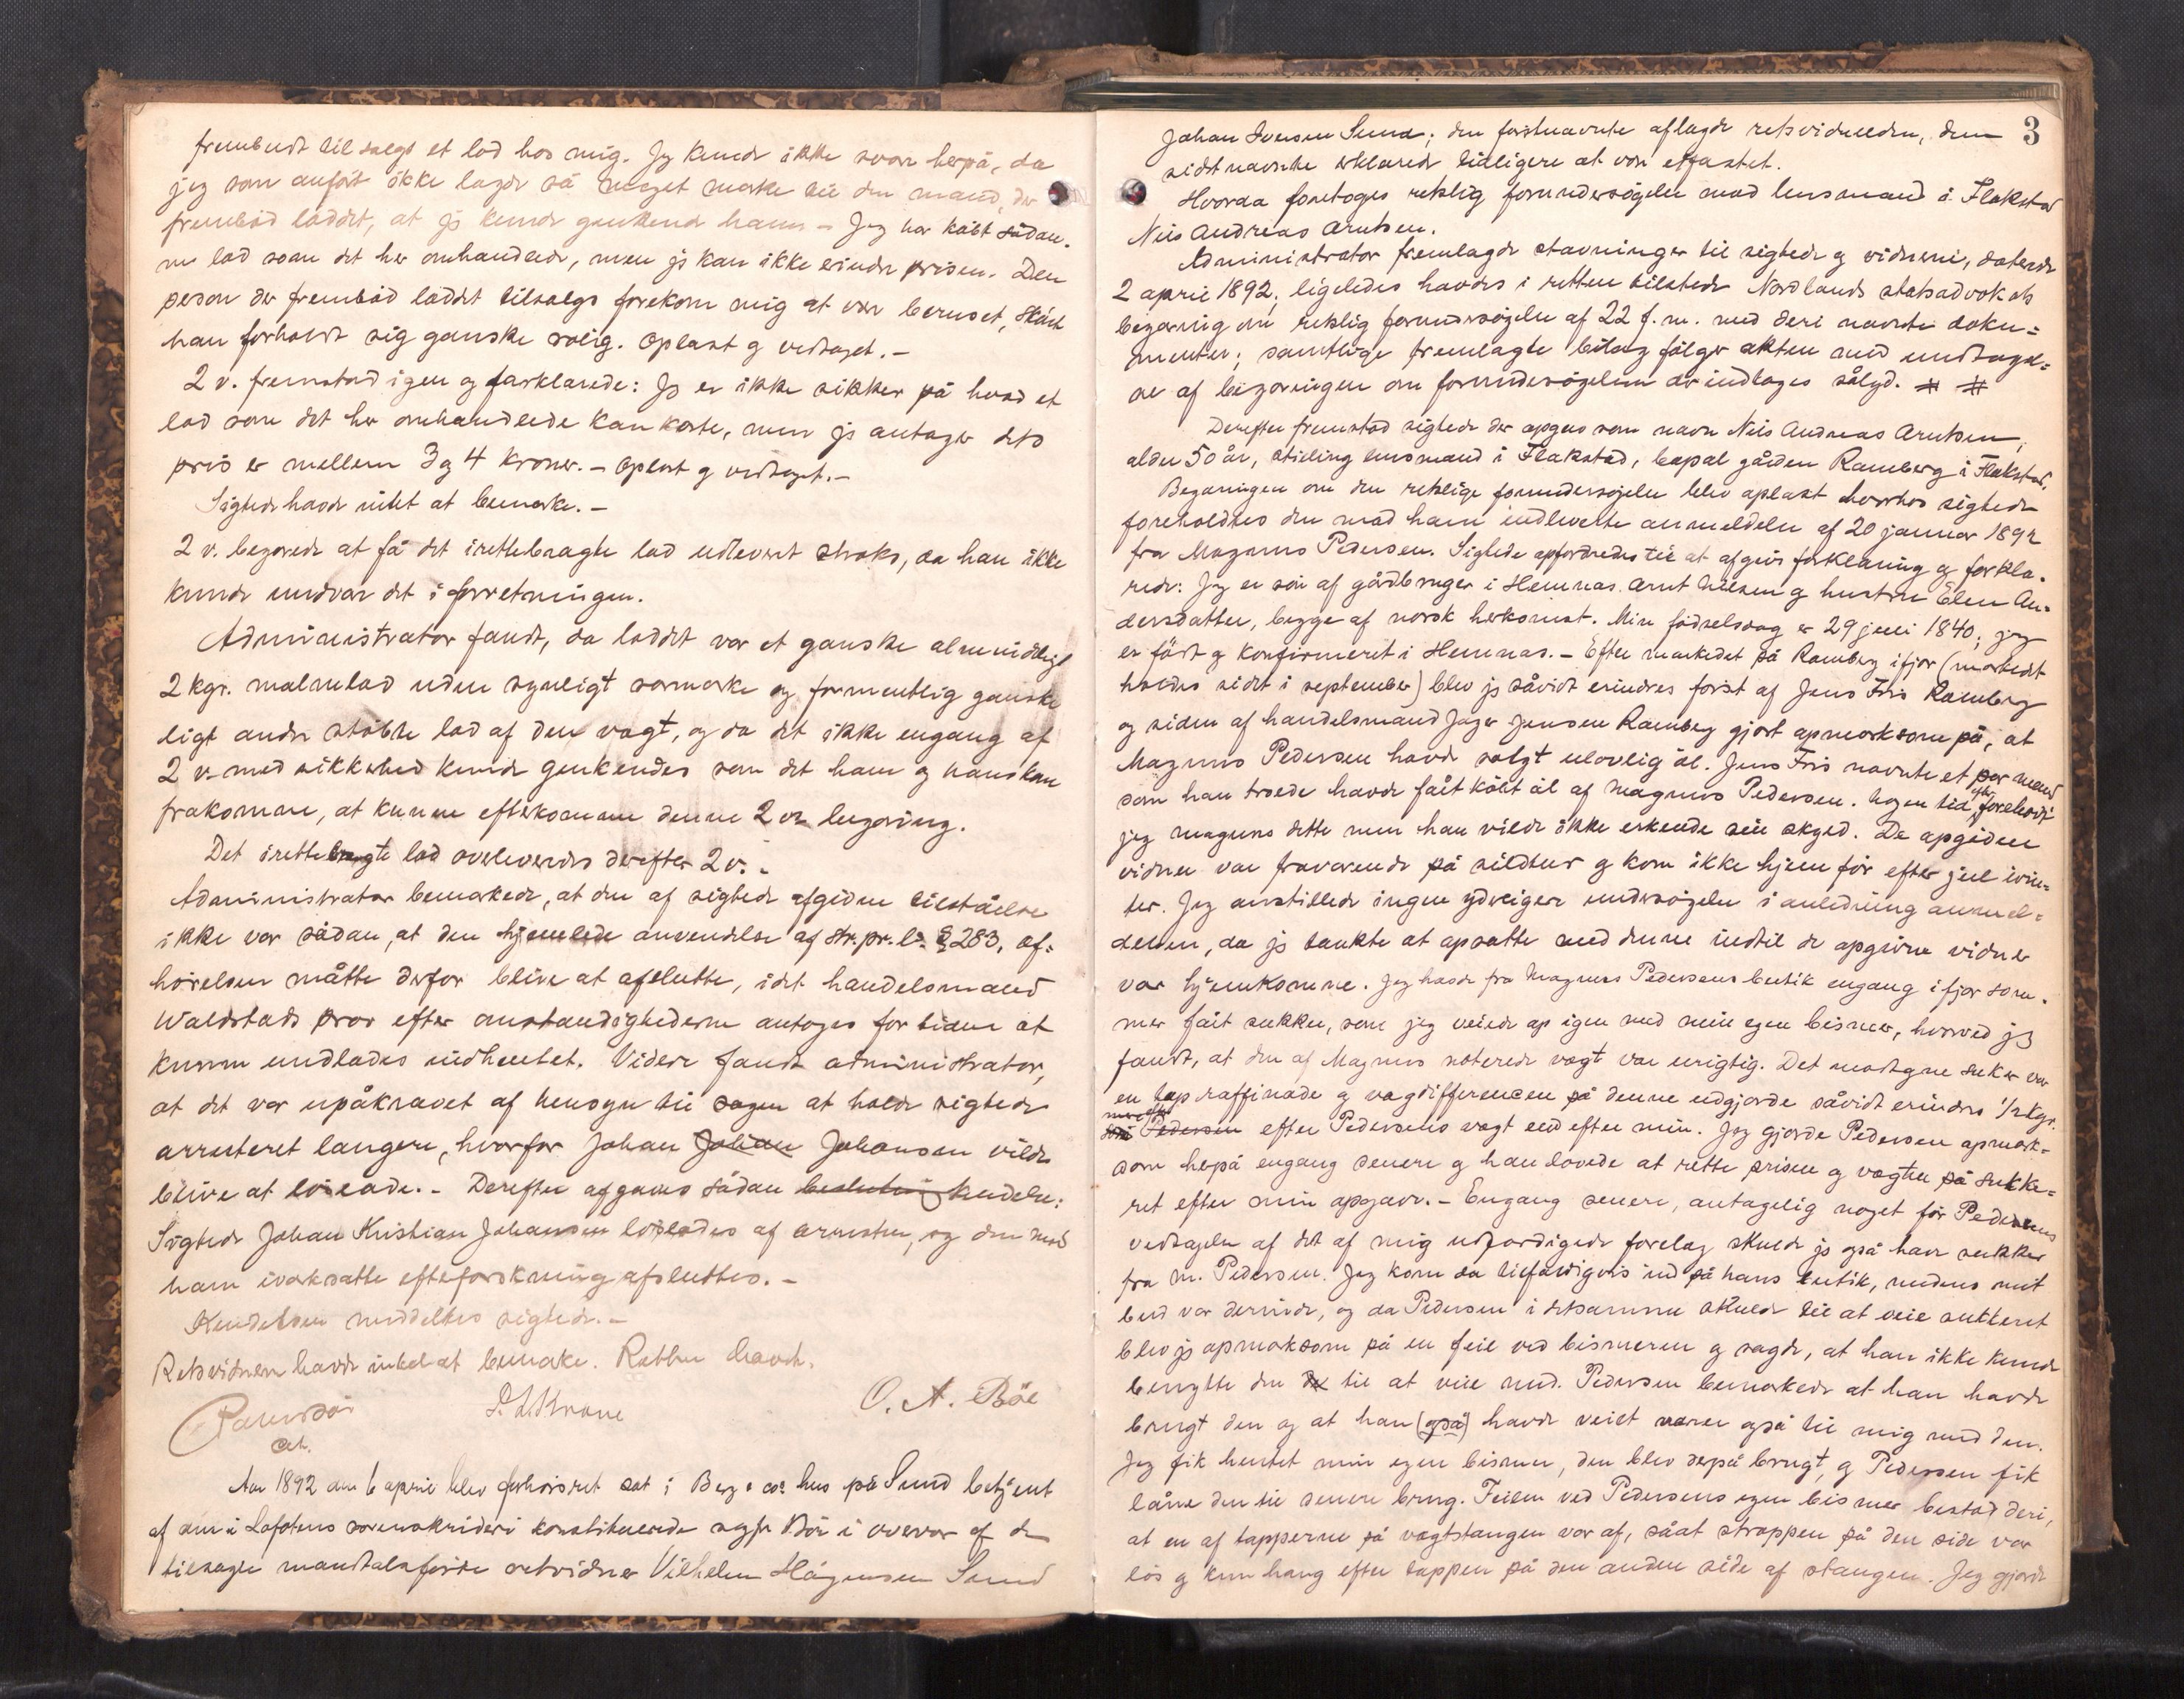 frembudt tilsalgs et lod hos mig. Jeg kunde ikke svare herpå, da
jeg som anført ikke lagde så meget mærke til den mand, der
frembød loddet, at jeg kunde gjenkjende ham – Jeg har købt sådan-
ne lod som det her omhandlede, men jeg kan ikke erindre prisen. Den
person der frembød loddet tilsalgs forekom mig at være beruset, skønt
han forholdt sig ganske rolig. Oplæst og vedtaget.–
2 v. fremstod igen og forklarede: Jeg er ikke sikker på hvad et
lod som det her omhandlede kan koste, men jeg antager dets
pris er mellem 3 og 4 kroner.– Oplæst og vedtaget.–
Sigtede havde intet at bemærke.–
2 v. begærede at få det irettebragte lod udleveret straks, da han ikke
kunde undvære det i forretningen.
Administrator fandt, da loddet var et ganske almindeligt
2 kgr. malmlod uden synligt særmærke og formentlig ganske
ligt andre støbte lod af den vægt, og da det ikke engang af
2 v. med sikkerhed kunde genkendes som det ham og hans
frakomne, at kunne efterkomme denne 2 vs begæring.
Det irettebragte lod overleveredes derefter 2 v.–
Administrator bemærkede, at den af sigtede afgivne tilståelse
ikke var sådan, at den hjemlede anvendelse af str.pr.l. § 283, af-
hørelsen måtte derfor blive at afslutte, idet handelsmand
Waldstads prov efter omstændighederne antoges for tiden at
kunne undlades indhentet. Videre fandt administrator,
at det var upåkrævet af hensyn til sagen at holde sigtede
arresteret længere, hvorfor Johan Johan Johansen vilde
blive at løslade.– Derefter afgaves sådan beslutning kendelse:
Sigtede Johan Kristian Johansen løslades af arresten, og den mod
ham iværksatte efterforskning afsluttes.–
Kendelsen meddeltes sigtede.–
Retsvidnerne havde intet at bemærke. Retten hævet.
O. A. Böe
Aar 1892 den 6 april blev forhørsret sat i Berg & cos hus på Sund betjent
af den i Lofotens sorenskriveri konstituerede sagfr Bör i overvær af de
tilsagte mandtalsførte retsvidner Vilhelm Hågensen Sund
3
Johan Iversen Sund; den førstnævnte aflagde retsvidneeden, den
sidstnævnte erklærede tidligere at være edfæstet.
Hvorda foretoges retslig forundersøgelse mod lensmand i Flakstad
Nils Andreas Arntsen.
Administrator fremlagde stævninger til sigtede og vidnerne, daterede
2 april 1892; ligeledes havdes i retten tilstede Nordlands statsadvokats
begæring om retslig forundersøgelse af 22 f.m. med deri nævnte doku-
menter; samtlige fremlagte bilag følger akten med undtagel-
se af begæringen om forundersøgelsen der indtages sålyd. # #
Derefter fremstod sigtede der opgav som navn Nils Andreas Arntsen,
alder 50 år, stilling lensmand i Flakstad, bopæl gården Ramberg i Flakstad.
Begæringen om den retslige forundersøgelse blev oplæst hvorhos sigtede
foreholdtes den mod ham indleverte anmeldelse af 20 januar 1892
fra Magnus Pedersen. Sigtede opfordredes til at afgive forklaring og forkla-
rede: Jeg er søn af gårdbruger i Hemnæs Arnt Nilsen og hustru Elen An-
dersdatter, begge af norsk herkomst. Min fødselsdag er 29 juli 1840; jeg
er født og konfirmeret i Hemnæs.– Efter markedet på Ramberg ifjor (markedet
holdes sidst i september) blev jeg såvidt erindres først af Jens Friis Ramberg
og siden af handelsmand Jager Jensen Ramberg gjort opmærksom på, at
Magnus Pedersen havde solgt ulovlig øl. Jens Friis nævnte et par mænd
som han troede havde fået købt øl af Magnus Pedersen. Nogen tid efter foreholdt
jeg Magnus dette men han vilde ikke erkende sin skyld. De opgivne
vidner var fraværende på sildtur og kom ikke hjem før efter jul ivin-
ter. Jeg anstillede ingen yderligere undersøgelse i anledning anmel-
delsen, da jeg tænkte at opsætte med denne indtil de opgivne vidner
var hjemkomne. Jeg havde fra Magnus Pedersens butik engang ifjor som-
mer fået sukker, som jeg veiede op igen med min egen bismer, hvorved jeg
fandt, at den af Magnus noterede vægt var urigtig. Det modtagne sukker var
en top raffinade og vægdifferencen på denne udgjorde såvidt erindres 1/2 kgr.
mere Pedersen efter Pedersens vægt end efter min. Jeg gjorde Pedersen opmærk-
som herpå engang senere og han lovede at rette prisen og vægten på sukke-
ret efter min opgave.– Engang senere, antagelig noget før Pedersens
vedtagelse af det af mig udfærdigede forelæg skulde jeg også have sukker
fra M. Pedersen. Jeg kom da tilfældigvis ind på hans butik, medens mit
bud var derinde, og da Pedersen i detsamme skulde til at veie sukkeret
blev jeg opmærksom på en feil ved bismeren og sagde, at han ikke kunde
benytte den til at veie med. Pedersen bemærkede at han havde
brugt den og at han (også) havde veiet varer også til mig med den.
Jeg fik hentet min egen bismer, den blev derpå brugt, og Pedersen fik
låne den til senere brug. Feilen ved Pedersens egen bismer bestod deri,
at en af tapperne på vægtstangen var af, såat stroppen på den side var
løs og kun hang efter tappen på den anden side af stangen. Jeg gjorde